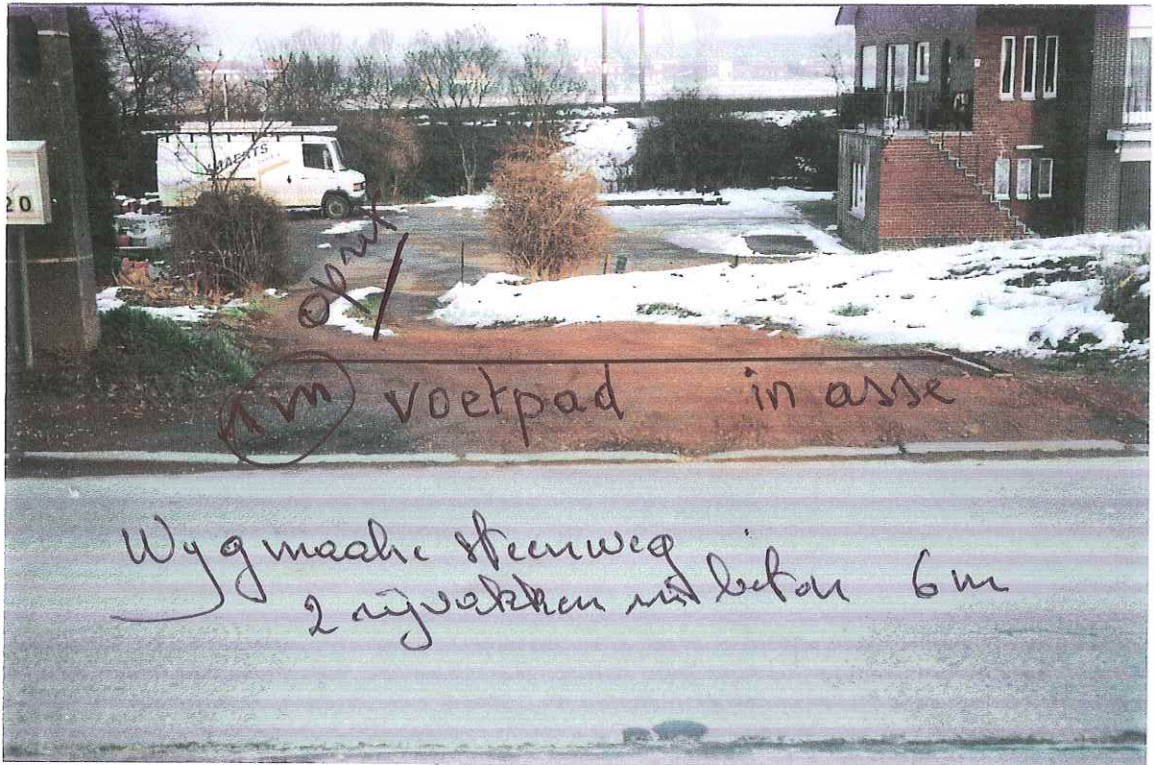 20
oprit
1 m voetpad in asse
Wygmaalse steenweg
2 rijvakken uit beton 6 m